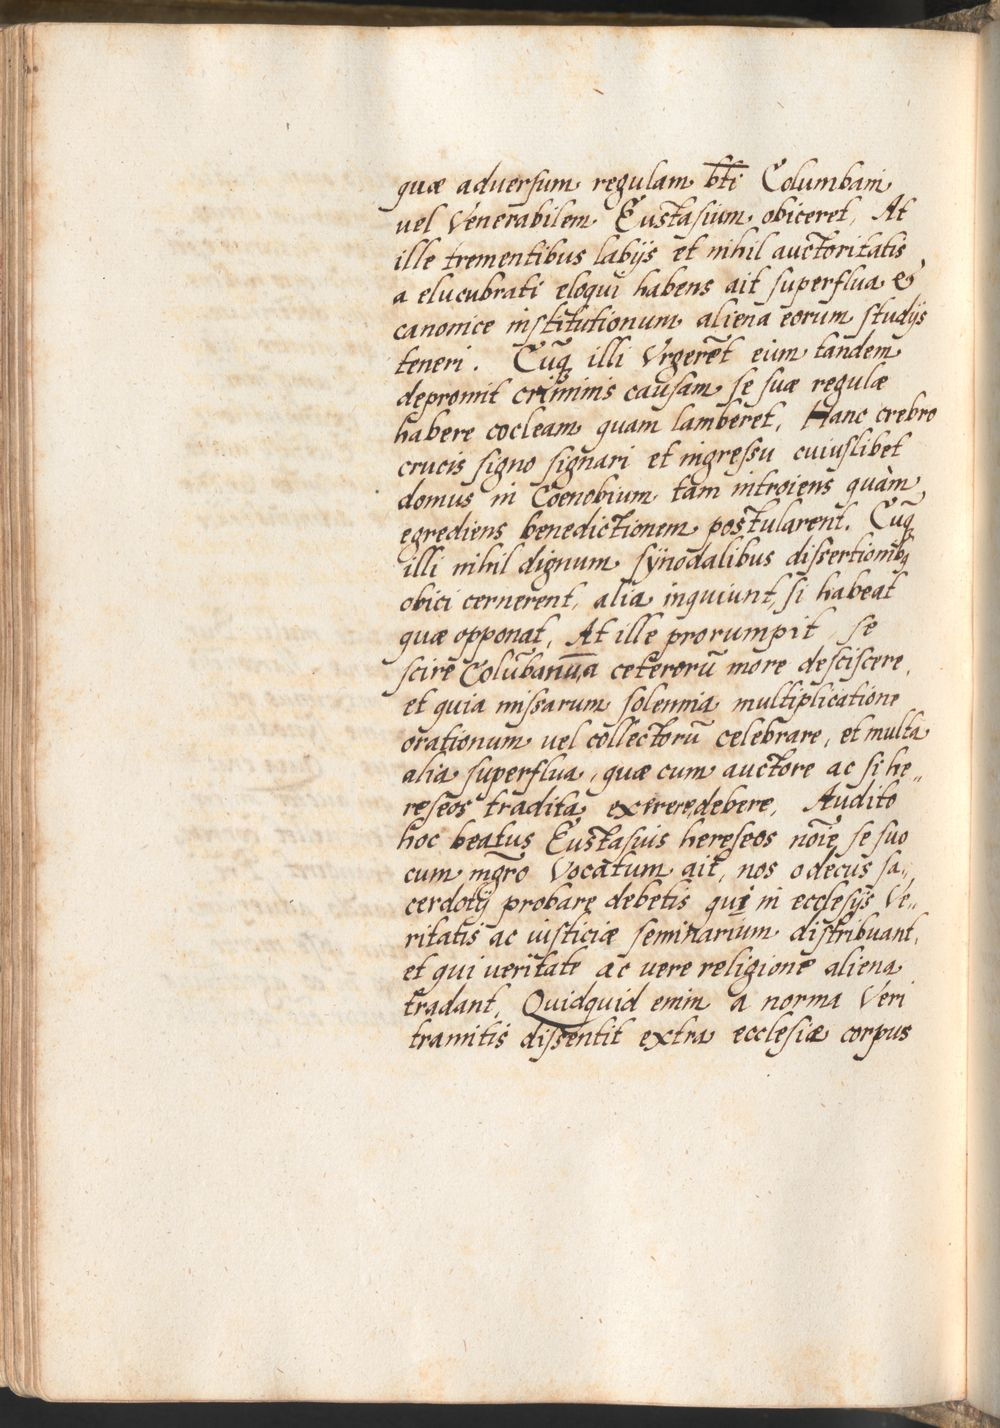 quæ adversum regulam bti̅ Columbani
vel Venerabilem Eustasium obiceret, At
ille trementibus labijs et nihil auctoritatis
a elucubrati eloqui habens ait superflua &
canonice institutionum aliena eorum studijs
teneri. Cūq illi Vrgerēt eum tandem
depromit criminis causam se suæ regulæ
habere cocleam quam lamberet, Hanc crebro
crucis signo signari et ingressu cuiuslibet
domus in Coenobium tam introiens quàm
egrediens benedictionem postularent. Cūq
illi nihil dignum sÿnodalibus dissertionibq
obici cernerent, alia inquiunt, si habeat
quæ opponat, At ille prorumpit, se
scire Colūbanūa ceterorū more desciscere,
et quia missarum solennia multiplicatione
orationum vel collectorū celebrare, et multa
alia superflua, quæ cum auctore ac si he„
reseos tradita exireredebere, Audito
hoc beatus Eustasius hereseos nōie se suo
cum mgr̄o Vocatum ait, nos o decus sa„
cerdotij probare debetis qui in ecclesijs Ve„
ritatis ac iusticiæ seminarium distribuant,
et qui veritate ac vere religione aliena
tradant, Quidquid enim a norma Veri
tramitis dissentit extra ecclesiæ corpus